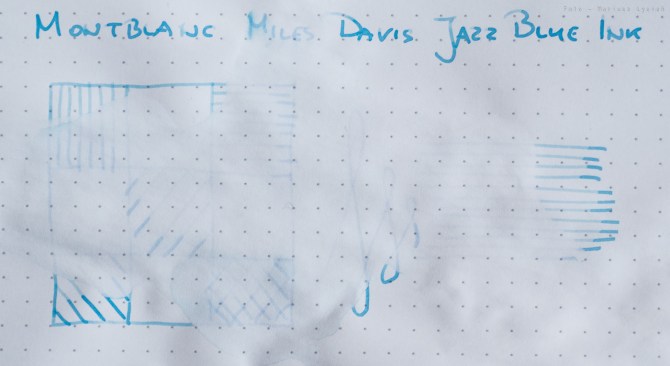 Montblanc Miles Davis Jazz Blue Ink